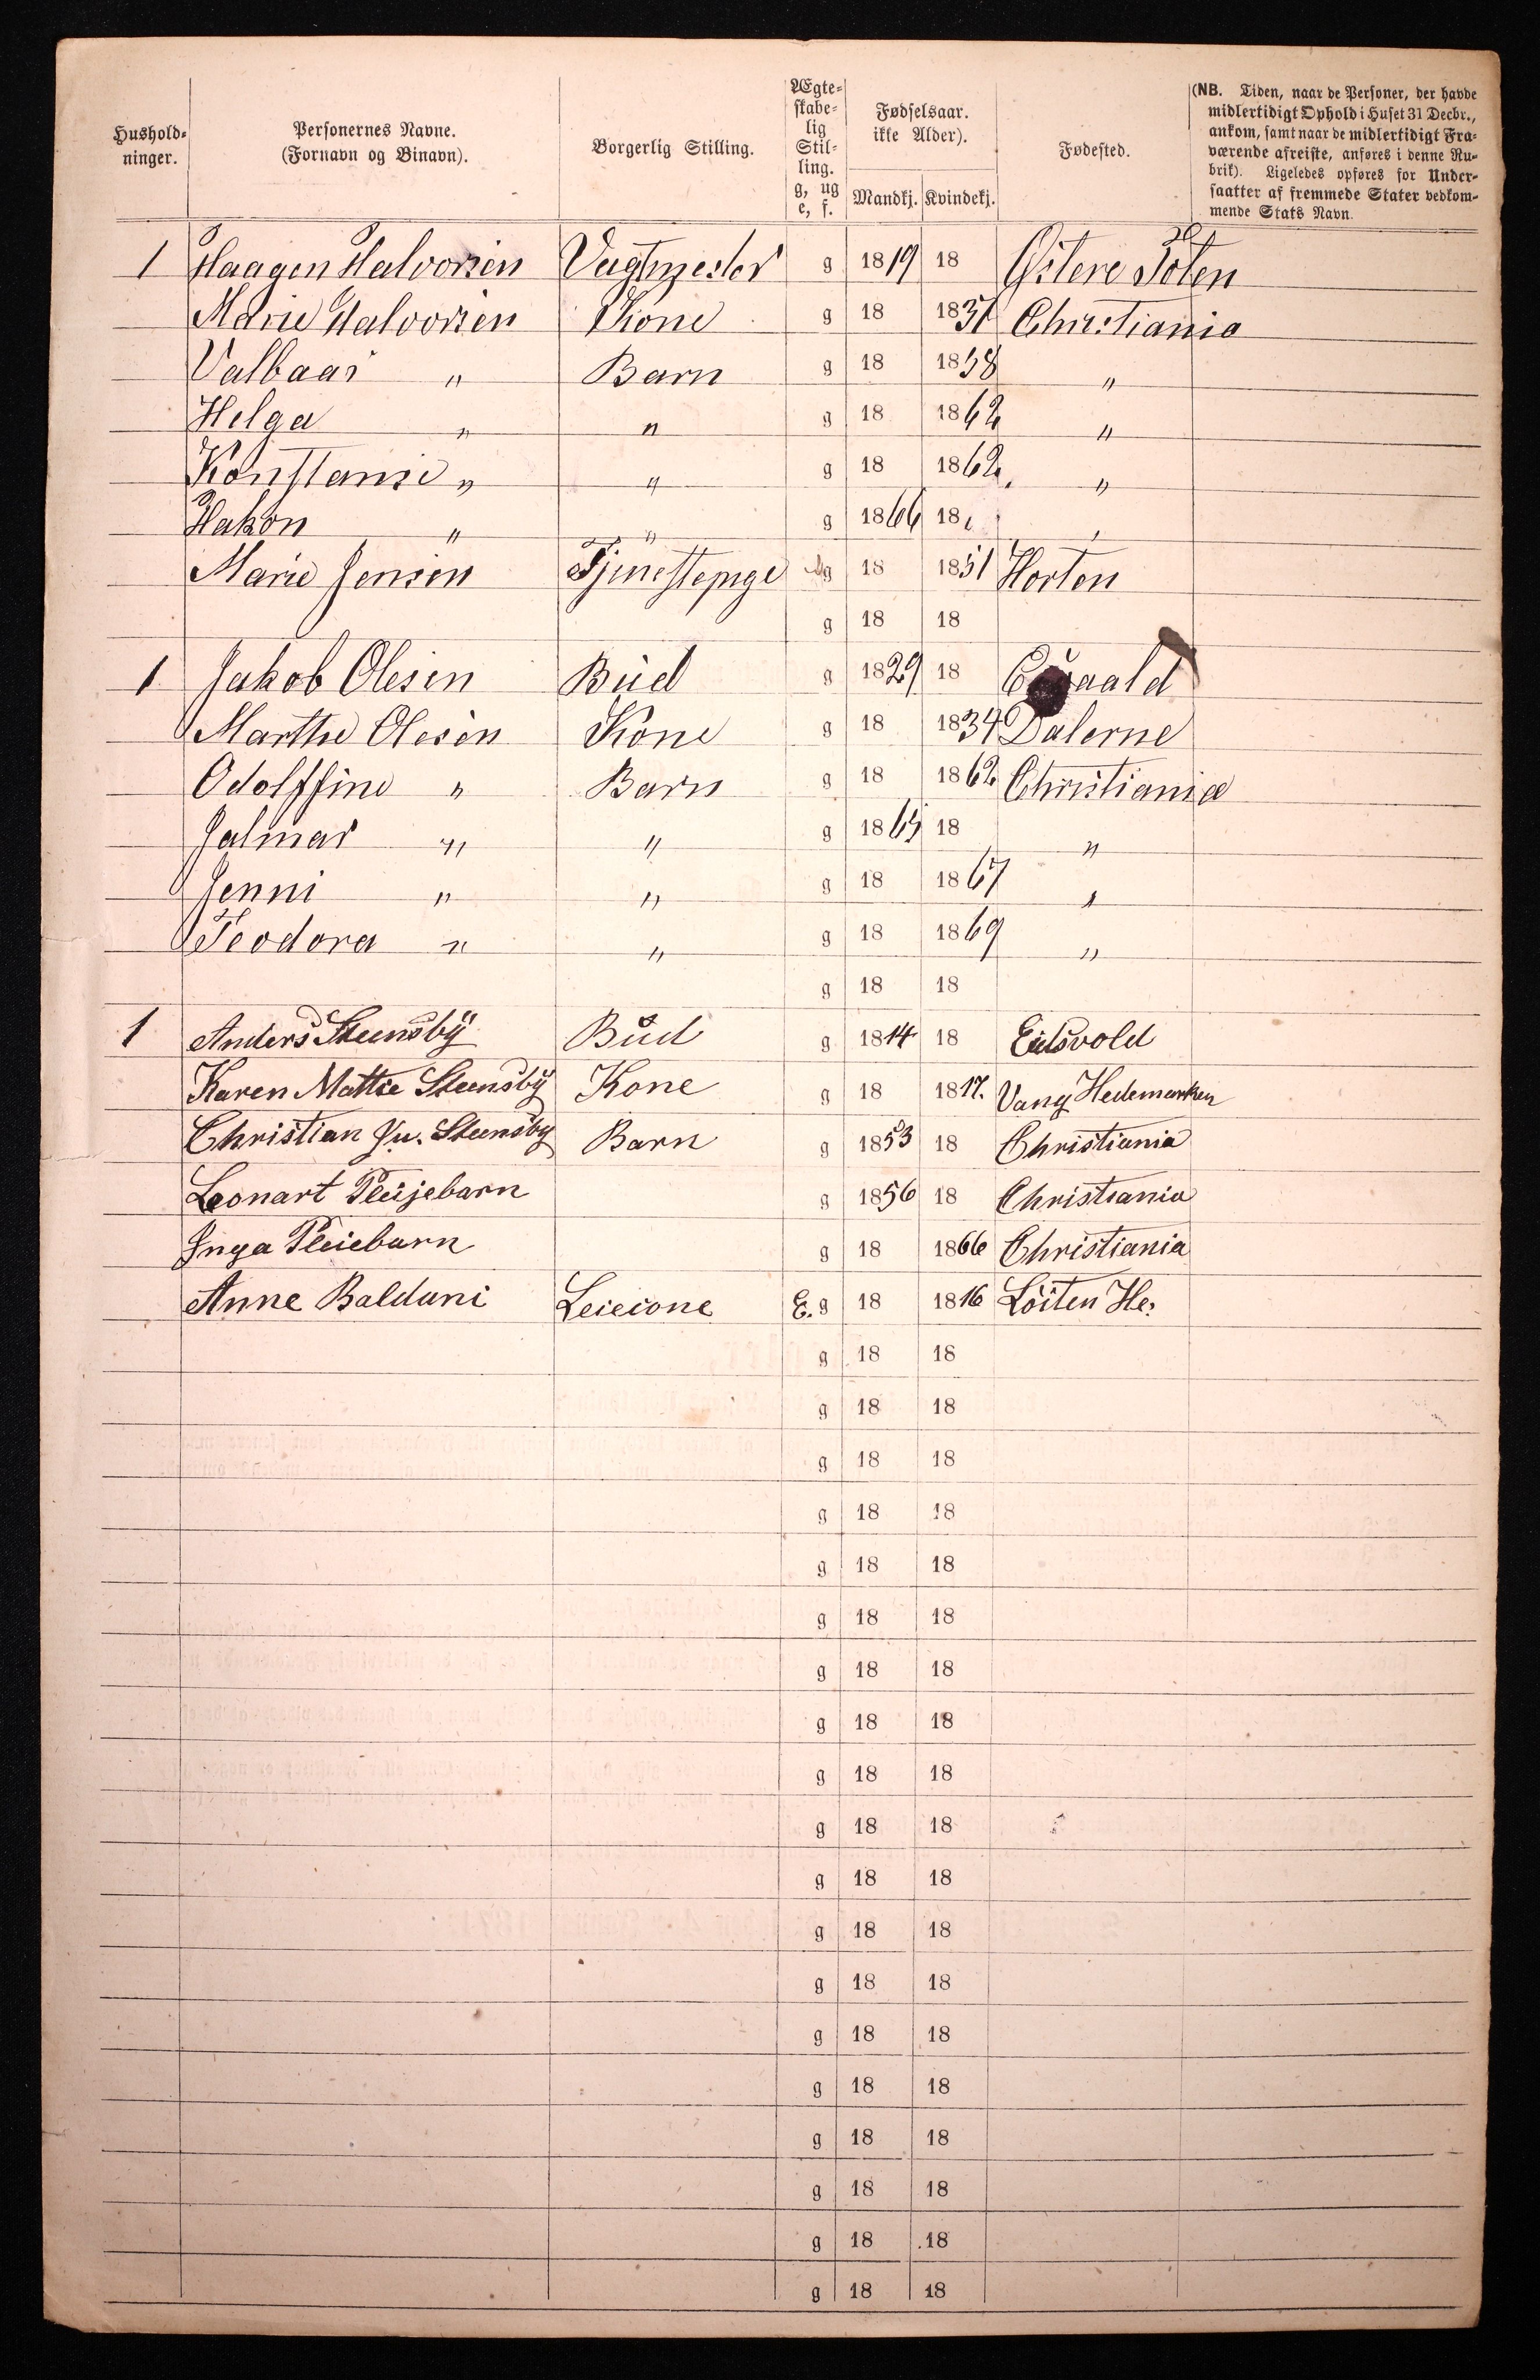 Hushold-
ninger.
Personernes Navne.
(Fornavn og Binavn).
Borgerlig Stilling.
Ægte-
skabe-
lig
Stil-
ling.
g, ug
e, f.
Fødselsaar.
ikke Alder).
Mandkj. Kvindekj.
Fødested.
(NB. Tiden, naar de Personer, der havde
midlertidigt Ophold i Huset 31 Decbr.,
ankom, samt naar de midlertidigt Fra-
værende afreiste, anføres i denne Ru-
brik). Ligeledes opføres for Under-
saatter af fremmede Stater vedkom-
mende Stats Navn.
1 Haagen Halvorsen Vagtmester g 1819 18 Østere Toten
Marie Halvorsen Kone g 18 1831 Christiania
Valbaar " Barn g 18 1858 "
Helga " " g 18 1862 "
Konstanse " " g 18 1862 "
Hakon " " g 1866 18 "
Marie Jensen Tjenestepige ug 18 1851 Horten
g 18 18
1 Jakob Olesen Bud g 1829 18
Marthe Olesen Kone g 18 1834 Dalerne
Odolffine " Barn g 18 1862 Christiania
Jalmar " " g 1865 18 "
Jenni " " g 18 1867 "
Teodora " " g 18 1869 "
g 18 18
1 Anders Steensby Bud g 1814 18 Eidsvold
Karen Mattie Steensby Kone g 18 1817. Vang Hedemarken
Christian Ju. Steensby Barn g 1853 18 Christiania
Leonart Pleijebarn g 1856 18 Christiania
Inga Pleiebarn g 18 1866 Christiania
Anne Balduni Leieione E. g 18 1816 Löiten He:
g 18 18
g 18 18
g 18 18
g 18 18
g 18 18
g 18 18
g 18 18
g 18 18
g 18 18
g 18 18
g 18 18
g 18 18
g 18 18
g 18 18
g 18 18
g 18 18
g 18 18
g 18 18
g 18 18